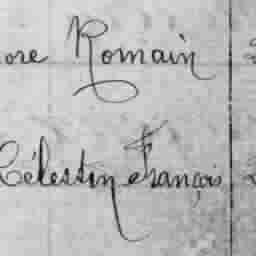 ore Romain
Célestin François